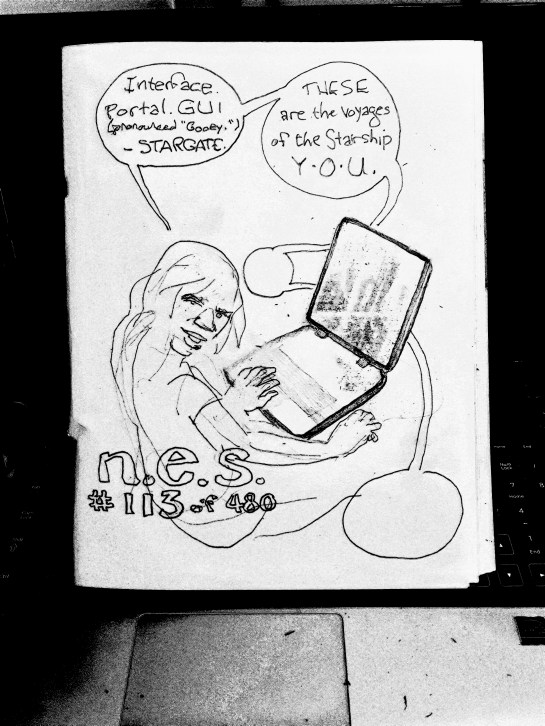 Interface.
Portal. GUI
(pronounced "Gooey.")
- STARGATE.
THESE
are the voyages
of the Starship
Y.O.U.
n.e.s.
#113 of 480